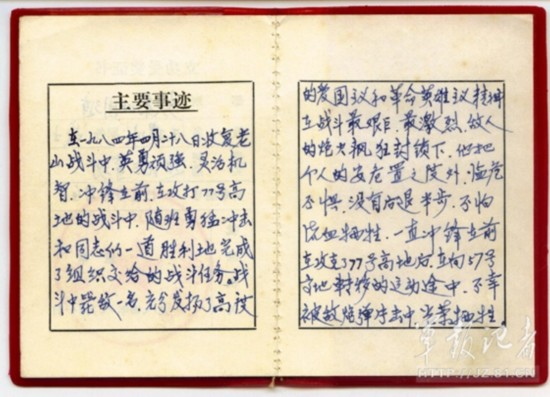 主要事迹
在一九八四年四月二十八日收复老
山战斗中,英勇顽强、灵活机
智、冲锋在前,在攻打77号高
地的战斗中,随班勇猛冲击
和同志们一道胜利地完成
了组织交给的战斗任务。战
斗中毙敌一名,充分发扬了高度
的爱国主义和革命英雄主义精神
在战斗最艰巨、最激烈,敌人
的炮火疯狂封锁下,他把
个人的安危置之度外,临危
不惧,没有后退半步,不怕
流血牺牲,一直冲锋在前
在攻克77号高地后,在向57号
高地转移的运动途中,不幸
被敌炮弹击中,光荣牺牲。
军报记者
HTTP://JZ.81.CN